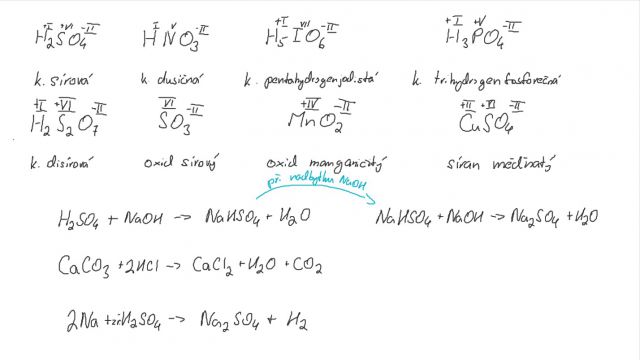 H₂SO₄ HNO₃ H₅IO₆ H₃PO₄
k. sírová k. dusičná k. pentahydrogenjodistá k. trihydrogenfosforečná
H₂S₂O₇ SO₃ MnO₂ CuSO₄
k. disírová oxid sírový oxid manganičitý síran měďnatý
při nadbytku NaOH
H₂SO₄ + NaOH -> NaHSO₄ + H₂O NaHSO₄ + NaOH -> Na₂SO₄ + H₂O
CaCO₃ + 2HCl -> CaCl₂ + H₂O + CO₂
2Na + zř. H₂SO₄ -> Na₂SO₄ + H₂